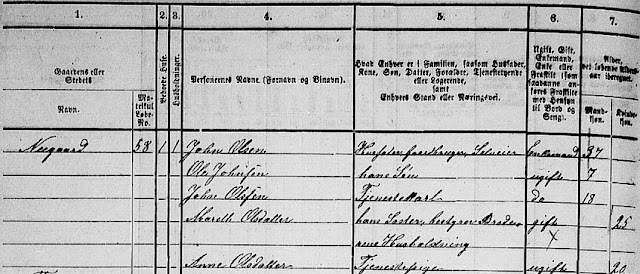 1. 2. 3. 4. 5. 6. 7.
Gaardens eller
Stedets
Navn.
Ma-
trikul
Løbe-
No.
Beboede Huse.
Husholdninger.
Personernes Navne (Fornavn og Binavn).
Hvad Enhver er i Familien, saasom Husfader,
Kone, Søn, Datter, Forældre, Tjenestetyende
eller Logerende,
samt
Enhvers Stand eller Næringsvei.
Ugift, Gift,
Enkemand,
Enke eller
Fraskilt (som
saadanne an-
føres Fraskilte
med Hensyn
til Bord og
Seng).
Alder,
det løbende Alders-
aar iberegnet.
Mand-
kjøn.
Kvinde-
kjøn.
Neegaard 58 1 1 John Olsen Husfader Gaardbruger, Selveier Enkemand 37
Ole Johnsen hans Søn ugift 7
John Olsen Tjenestekarl do 18
Mareth Olsdatter hans Søster, bestyrer Brode- gift 25
rens Husholdning x
Anne Olsdatter Tjenestepige ugift